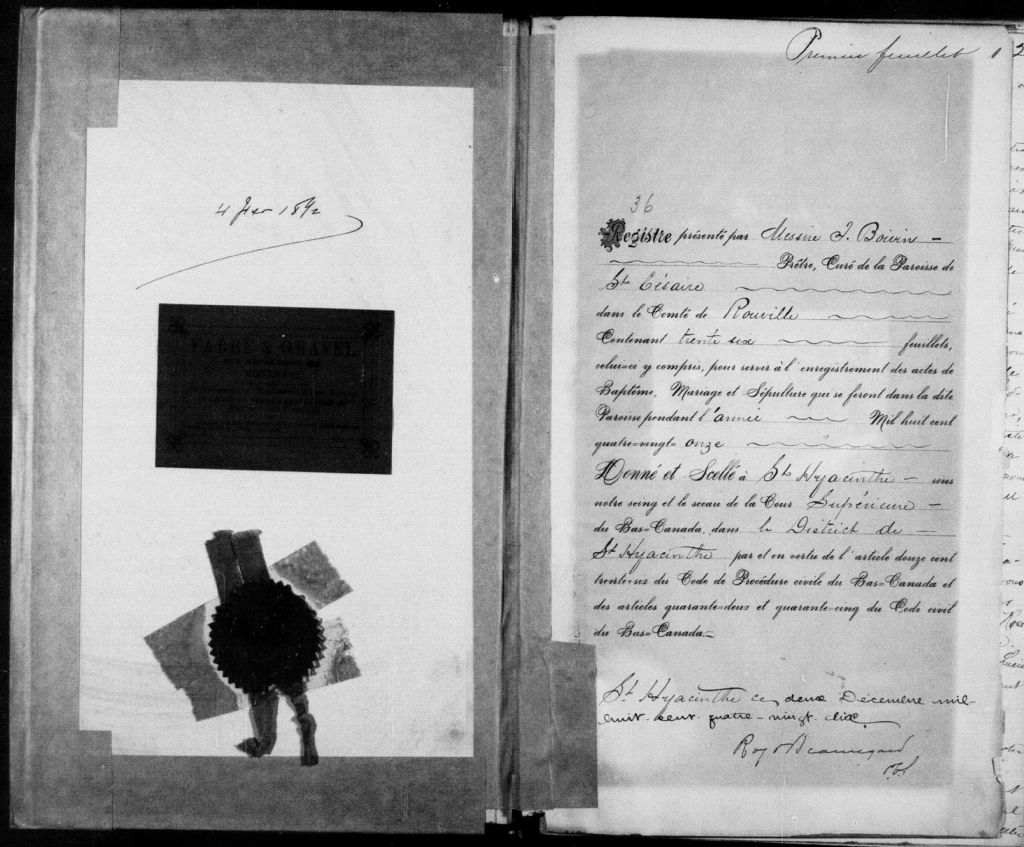 4 fev 1892
FABRE & GRAVEL
Premier feuillet
36
Registre présenté par Messire J. Boivin
Prêtre, Curé de la Paroisse de
St Césaire
dans le Comté de Rouville
Contenant trente six feuillets,
celui-ci y compris, pour servir à l'enregistrement des actes de
Baptême, Mariage et Sépulture qui se feront dans la dite
Paroisse pendant l'année Mil huit cent
quatre-vingt-onze
Donné et Scellé à St Hyacinthe sous
notre seing et le sceau de la Cour Supérieure
du Bas-Canada, dans le District de
St Hyacinthe par et en vertu de l'article douze cent
trente-six du Code de Procédure civile du Bas-Canada et
des articles quarante-deux et quarante-cinq du Code civil
du Bas-Canada.
St Hyacinthe ce deux Décembre mil
huit cent quatre-vingt dix
Roy & Beauregard
P.C.S.